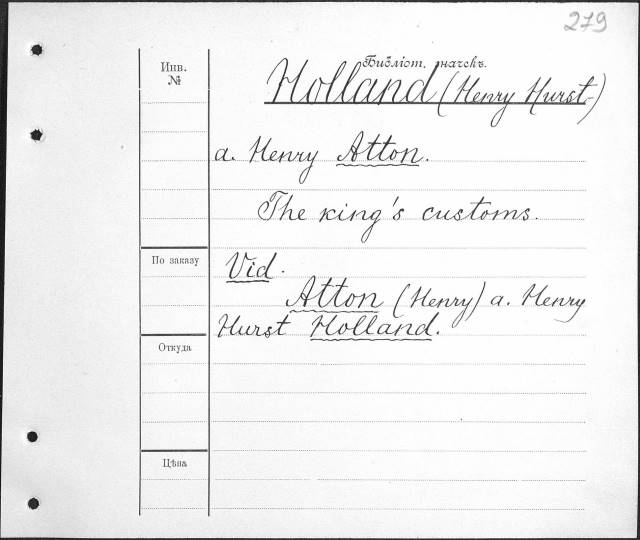 279
Инв.
№
Библіот. начскъ.
Holland (Henry Hurst)
a. Henry Atton.
The king's customs.
По заказу
Vid.
Atton (Henry) a. Henry
Hurst Holland.
Откуда
Цѣна